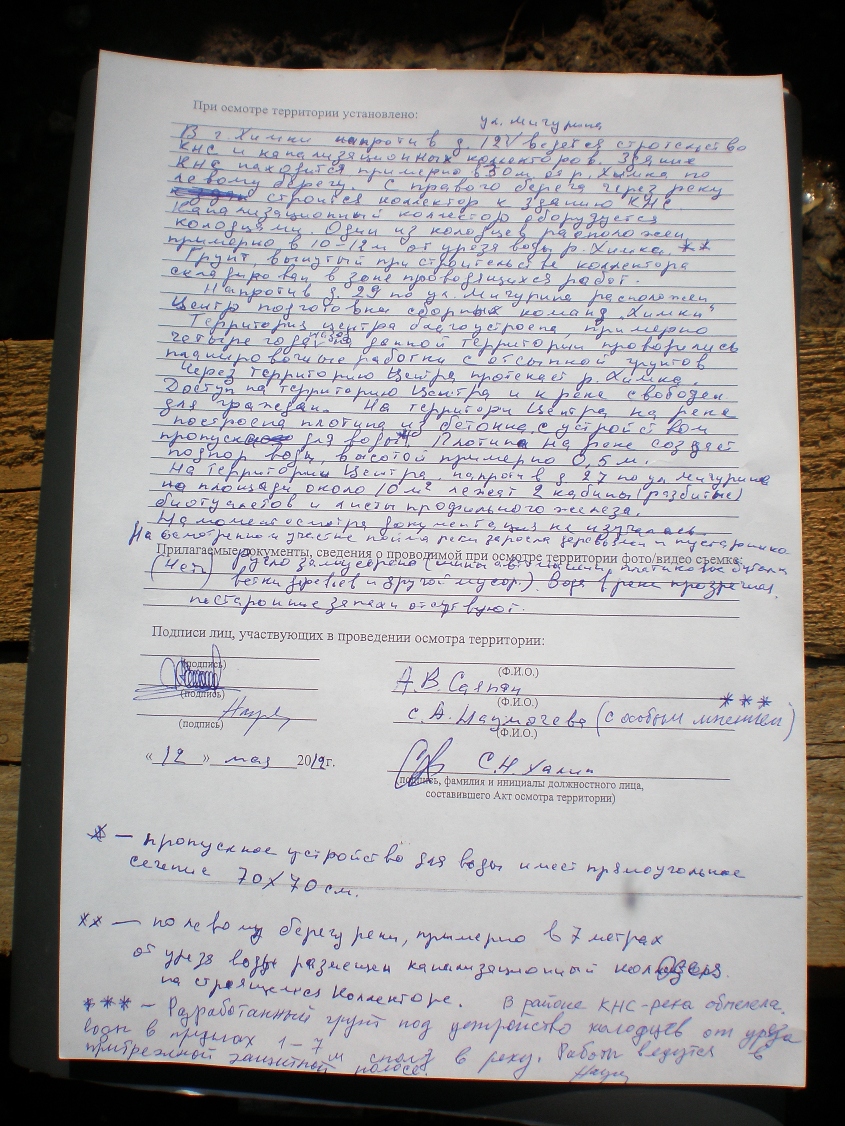 При осмотре территории установлено:
ул. Мичурина
В г. Химки напротив д. 12 ведется строительство
КНС и канализационных коллекторов. Здание
КНС находится примерно в 50 м от р. Химка по
левому берегу. С правого берега через реку
строится коллектор к зданию КНС
Канализационный коллектор оборудуется
колодцами. Один из колодцев расположен
примерно в 10-12 м от уреза воды р. Химка. **
Грунт, вынутый при строительстве коллектора
складирован в зоне проводящихся работ.
Напротив д. 29 по ул. Мичурина расположен
Центр подготовки сборных команд „Химки"
Территория центра благоустроена, примерно
четыре года назад на данной территории проводились
планировочные работы с отсыпкой грунтов
Через территорию Центра протекает р. Химка.
Доступ на территорию Центра и к реке свободен
для граждан. На территори Центра на реке
построена плотина из бетона с устройством
пропуска для воды* Плотина на реке создает
подпор воды, высотой примерно 0,5 м.
На территории Центра, напротив д. 27 по ул. Мичурина
на площади около 10 м² лежат 2 кабины (разбитые)
биотуалетов и листы профильного железа.
На момент осмотра документация не изучалась.
На осмотренном участке пойма реки заросла деревьями и кустарником
Прилагаемые документы, сведения о проводимой при осмотре территории фото/видео съемке:
(нет) русло замусорено (шины автомашин, пластиковые бутылки
ветки деревьев и другой мусор.). Вода в реке прозрачная,
посторонние запахи отсутвуют.
Подписи лиц, участвующих в проведении осмотра территории:
(подпись)
(Ф.И.О.)
А.В. Саяпин
(подпись)
(Ф.И.О.)
***
С.А. Наумочева (с особым мнением)
(подпись)
(Ф.И.О.)
« 12 » мая 2012г.
С.Н. Халин
(подпись, фамилия и инициалы должностного лица,
составившего Акт осмотра территории)
* — пропускное устройство для воды имеет прямоугольное
сечение 70 х 70 см.
** — по левому берегу реки, примерно в 7 метрах
от уреза воды размещен канализационный колодезь
на строящемся коллекторе. В районе КНС-река обмелела.
*** — Разработанный грунт под устройство колодцев от уреза
воды в пределах 1-7 м сполз в реку. Работы ведутся в
прибрежной защитной полосе.